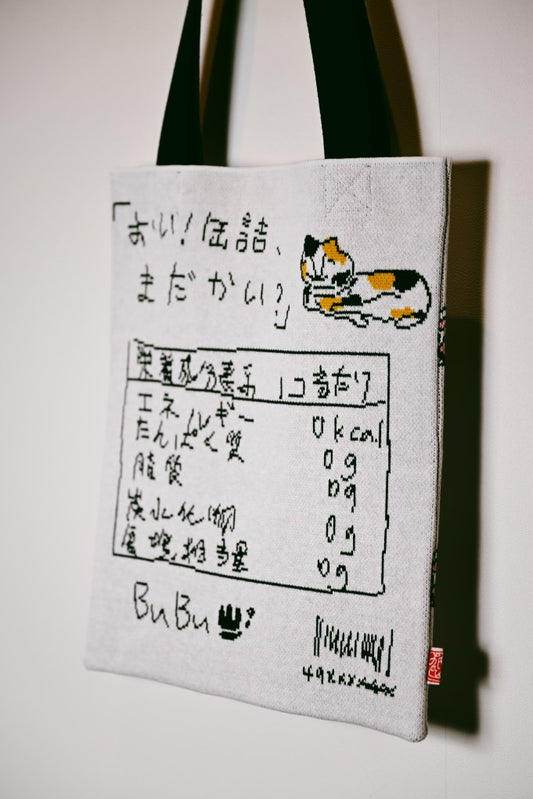 「おい！缶詰、
まだかい？」
栄養成分表示 1コ当たり
エネルギー 0kcal
たんぱく質 0g
脂質 0g
炭水化物 0g
食塩相当量 0g
BuBu